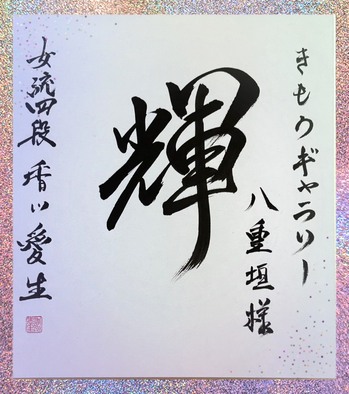 きものギャラリー
八重垣様
輝
女流四段 香川愛生